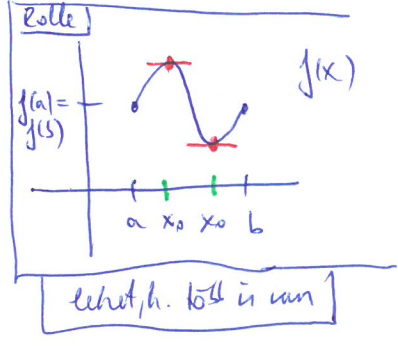 Rolle
f(x)
f(a)=
f(b)
a x₀ x₀ b
lehet, h. több is van